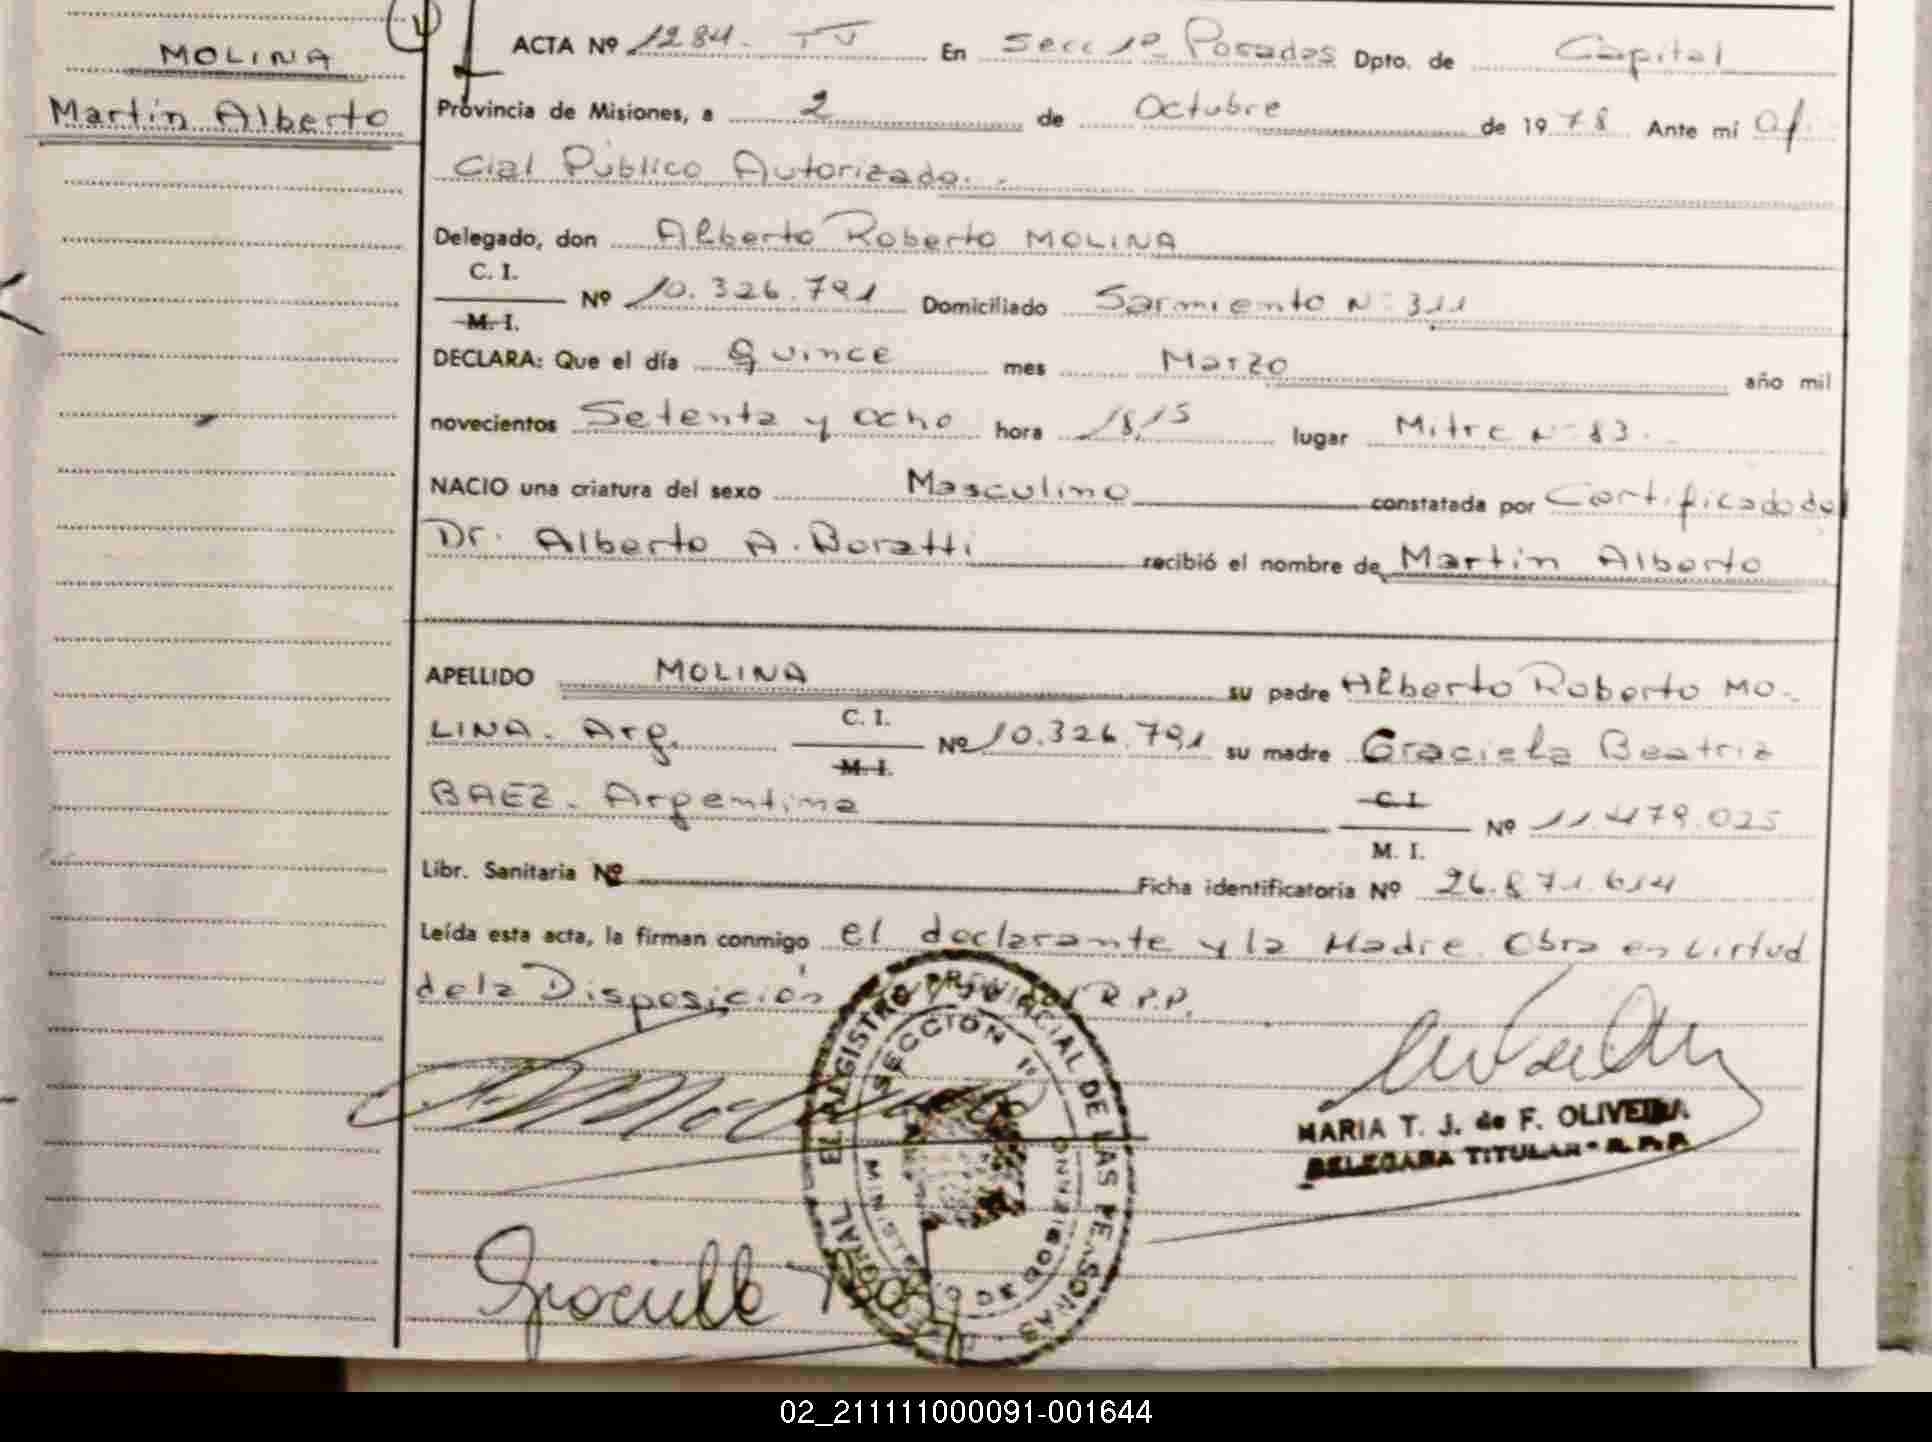 MOLINA
Martín Alberto
ACTA Nº 1284. TJ En Secc 1º Posadas Dpto. de Capital
Provincia de Misiones, a 2 de Octubre de 1978 Ante mí Ofi
cial Público Autorizado.
Delegado, don Alberto Roberto MOLINA
C. I.
M. I.
Nº 10.326.791 Domiciliado Sarmiento Nº 311
DECLARA: Que el día Quince mes Marzo año mil
novecientos Setenta y ocho hora 18,15 lugar Mitre Nº 83.
NACIO una criatura del sexo Masculino constatada por Certificado del
Dr. Alberto A. Boratti recibió el nombre de Martín Alberto
APELLIDO MOLINA su padre Alberto Roberto MO-
LINA. Arg. C. I. Nº 10.326.791 su madre Graciela Beatriz
M. I.
BAEZ. Argentina C. I. Nº 11.479.025
M. I.
Libr. Sanitaria Nº Ficha identificatoria Nº 26.871.614
Leída esta acta, la firman conmigo el declarante y la Madre. Obra en virtud
de la Disposición R.P.P.
EL REGISTRO PROVINCIAL DE LAS PERSONAS
SECCION 1º
MARIA T. J. de F. OLIVEIRA
DELEGADA TITULAR - R.P.P.
02_211111000091-001644